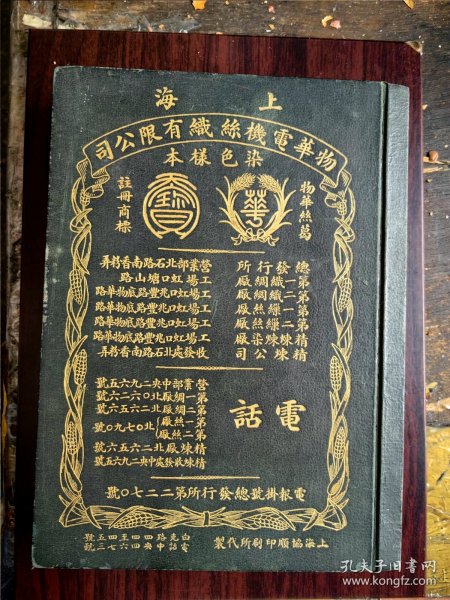 上海
物華電機絲織有限公司
染色樣本
物華絲葛
華
註冊商標
總發行所 營業部北石路南香粉弄
第一織綢廠 工場虹口塘山路
第二織綢廠 工場虹口兆豐路底物華路
第一繅絲廠 工場虹口兆豐路底物華路
第二繅絲廠 工場虹口兆豐路底物華路
精煉染廠 工場虹口兆豐路底物華路
精煉公司 收發處北石路南香粉弄
電話
營業部中央二九六五號
第一綢廠北〇六二六號
第二綢廠北二六五六號
第一絲廠
第二絲廠
北〇七九〇號
精煉廠北二六五六號
精煉收發處中央二九六五號
電報掛號總發行所第二二七〇號
上海協順印刷所代製
白克路四四至四五號
電話中央四六七三號
孔夫子旧书网
book.kongfz.com